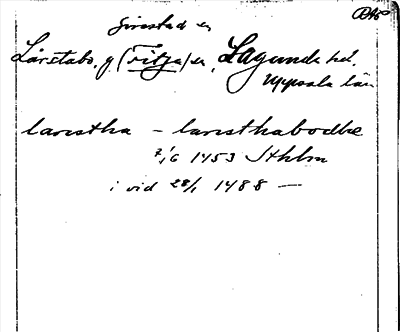 Lårstabo, g (Fitja) sn, Lagunda hd.
Uppsala län
larestha – laresthabodhæ
7/6 1453 Sthlm
i vid 28/1 1488 —